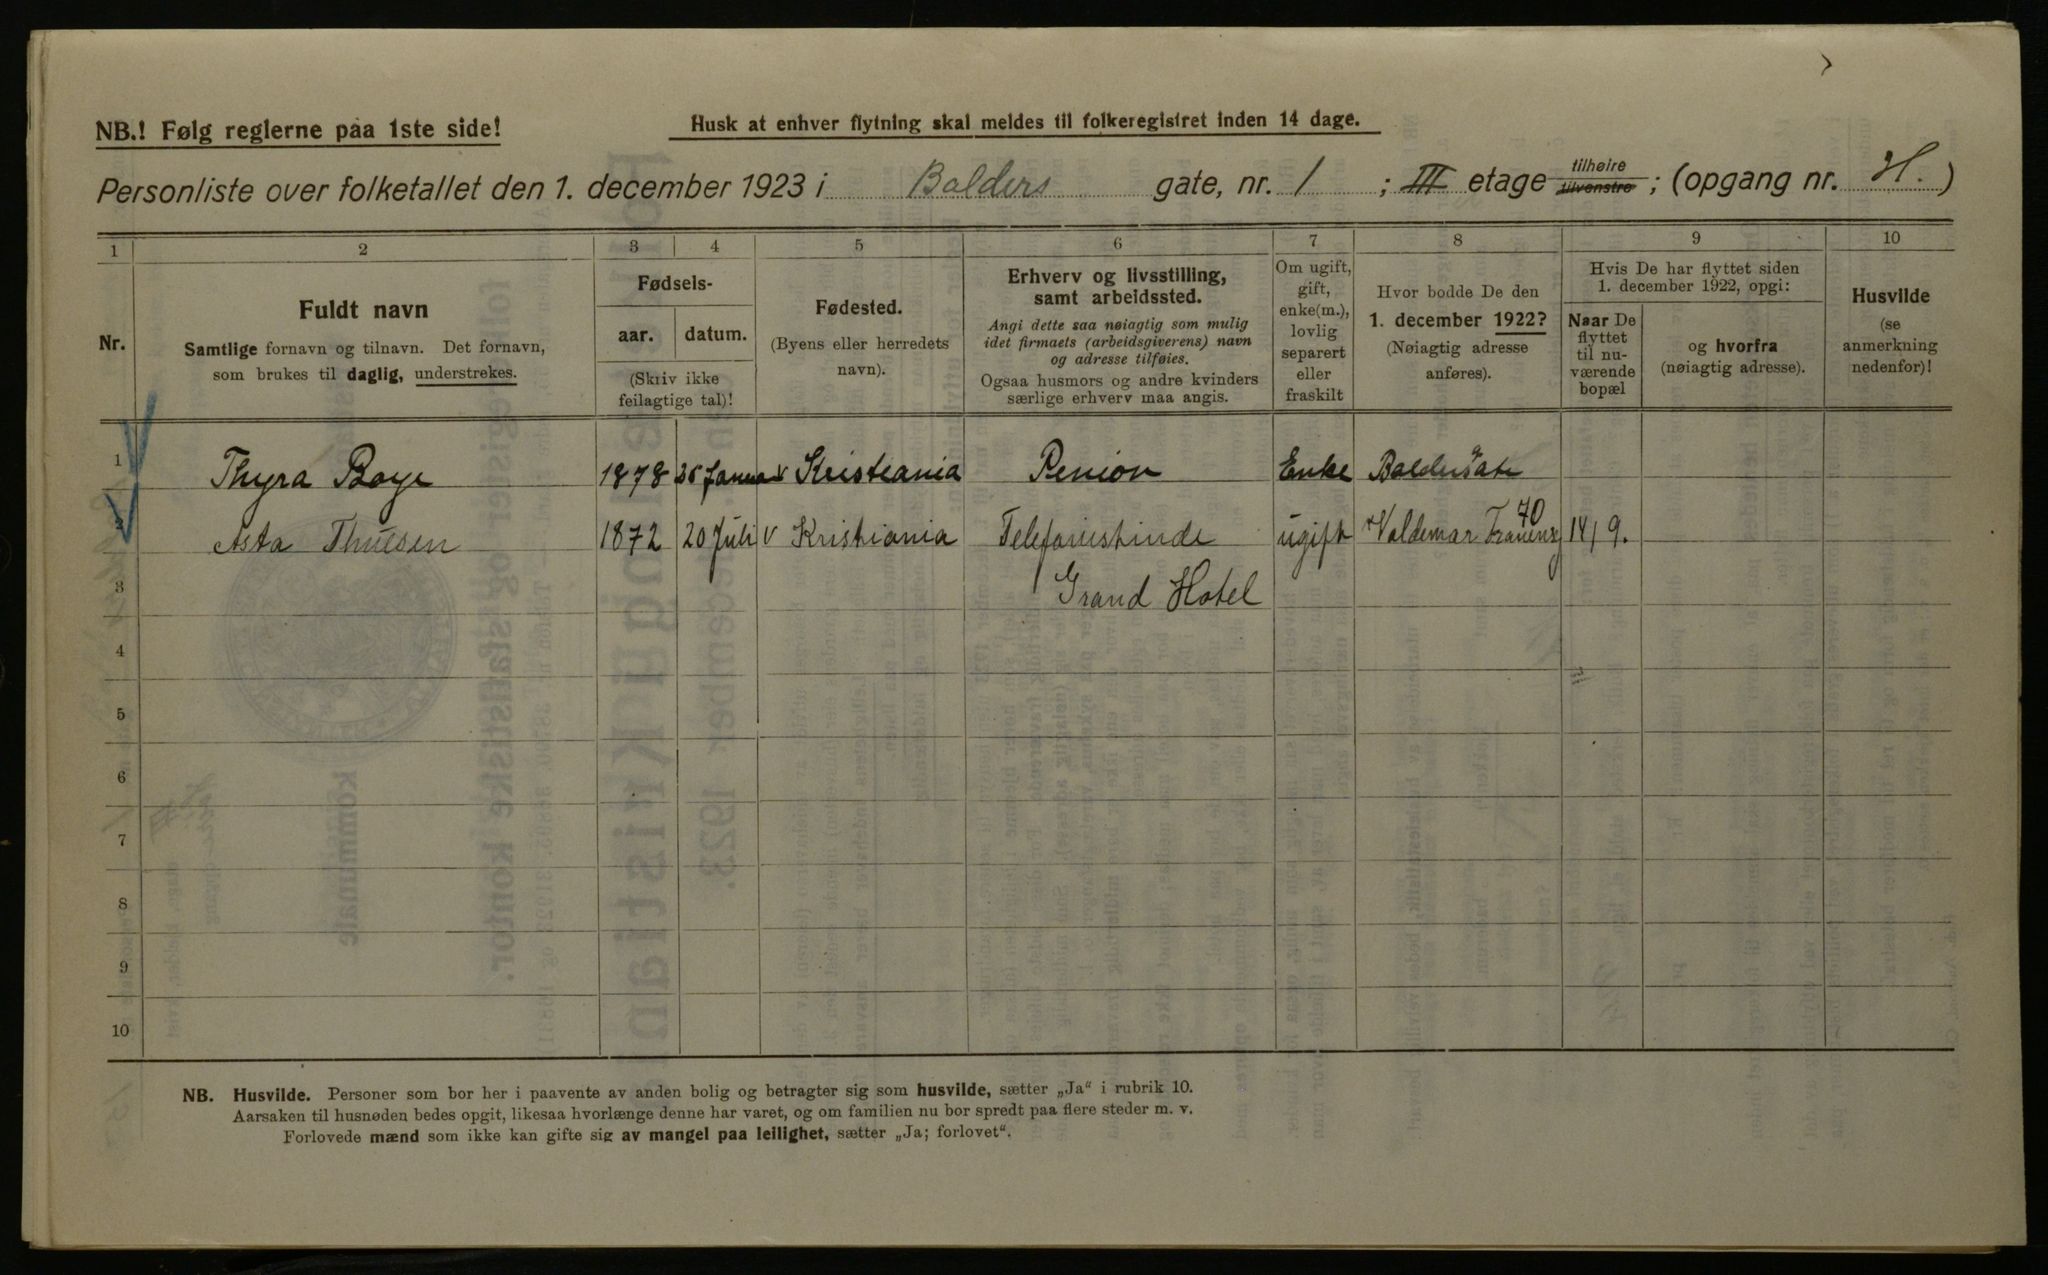 NB.! Følg reglerne paa 1ste side!
Husk at enhver flytning skal meldes til folkeregistret inden 14 dage.
Personliste over folketallet den 1. december 1923 i Balders gate, nr. 1 ; III etage tilhøire tilvenstre ; (opgang nr. H. )
1 2 3 4 5 6 7 8 9 10
Nr.
Fuldt navn
Samtlige fornavn og tilnavn. Det fornavn,
som brukes til daglig, understrekes.
Fødsels-
aar. datum.
(Skriv ikke
feilagtige tal)!
Fødested.
(Byens eller herredets
navn).
Erhverv og livsstilling,
samt arbeidssted.
Angi dette saa nøiagtig som mulig
idet firmaets (arbeidsgiverens) navn
og adresse tilføies.
Ogsaa husmors og andre kvinders
særlige erhverv maa angis.
Om ugift,
gift,
enke(m.),
lovlig
separert
eller
fraskilt
Hvor bodde De den
1. december 1922?
(Nøiagtig adresse
anføres).
Hvis De har flyttet siden
1. december 1922, opgi:
Naar De
flyttet
til nu-
værende
bopæl
og hvorfra
(nøiagtig adresse).
Husvilde
(se
anmerkning
nedenfor)!
1 Thyra Boye 1878 Kristiania Pension Enke
2 Asta Thuesen 1872 20 Juli v Kristiania Telefonistinde ugift Valdemar 70 14/9.
3 Grand Hotel
4
5
6
7
8
9
10
NB. Husvilde. Personer som bor her i paavente av anden bolig og betragter sig som husvilde, sætter „Ja“ i rubrik 10.
Aarsaken til husnøden bedes opgit, likesaa hvorlænge denne har varet, og om familien nu bor spredt paa flere steder m. v.
Forlovede mænd som ikke kan gifte sig av mangel paa leilighet, sætter „Ja; forlovet“.